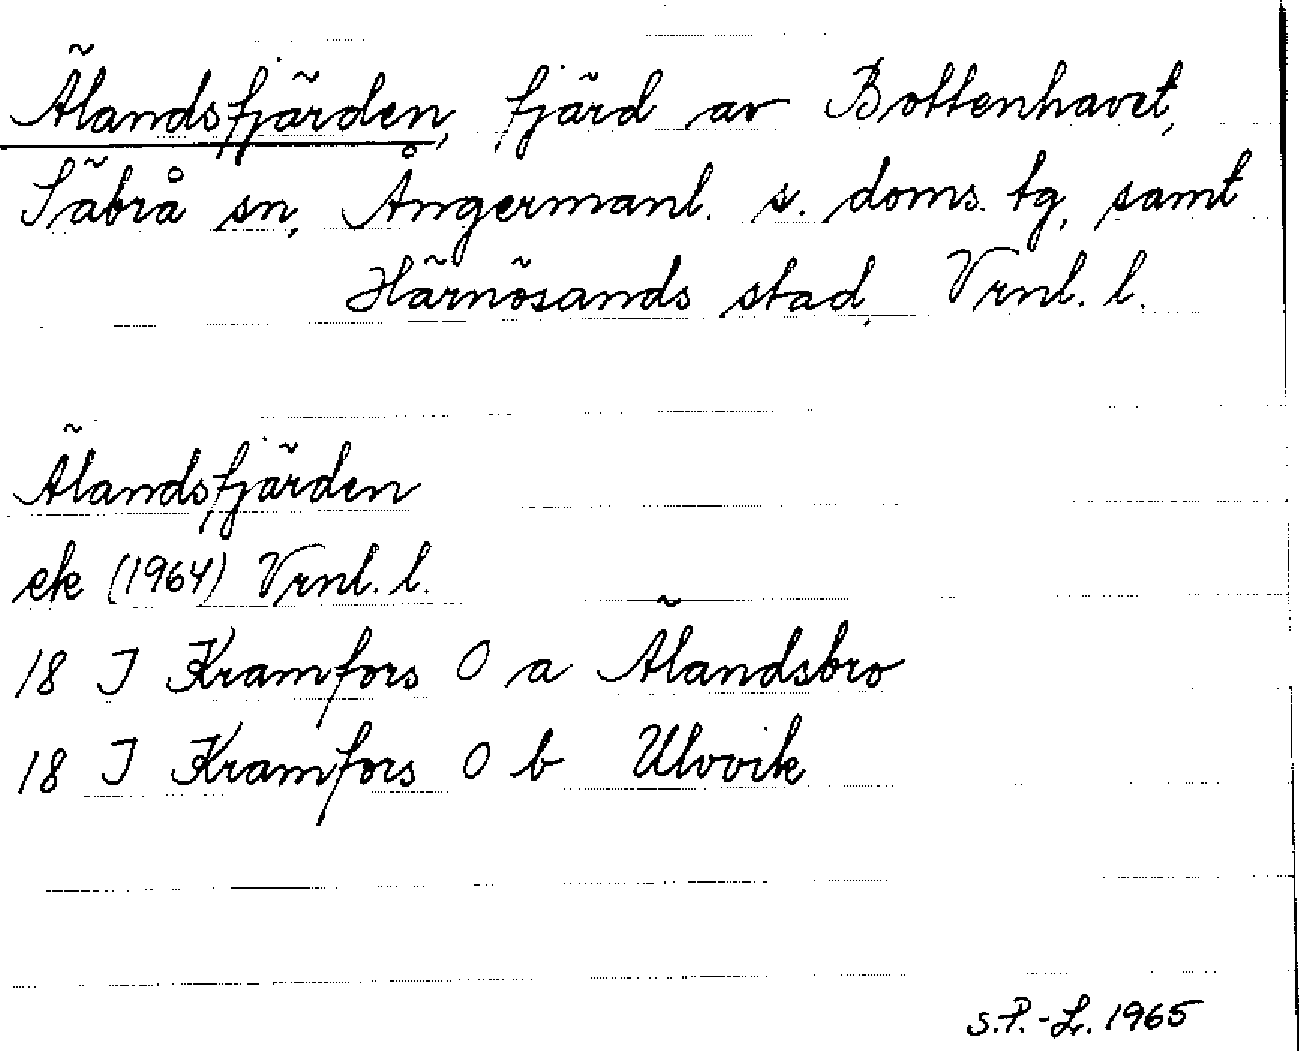 Älandsfjärden, fjärd av Bottenhavet,
Säbrå sn, Ångermanl. s. doms. tg, samt
Härnösands stad, Vrnl. l.
Älandsfjärden
ek (1964) Vrnl. l.
18 I Kramfors O a Älandsbro
18 I Kramfors O b Ulvvik
S.P.-L. 1965